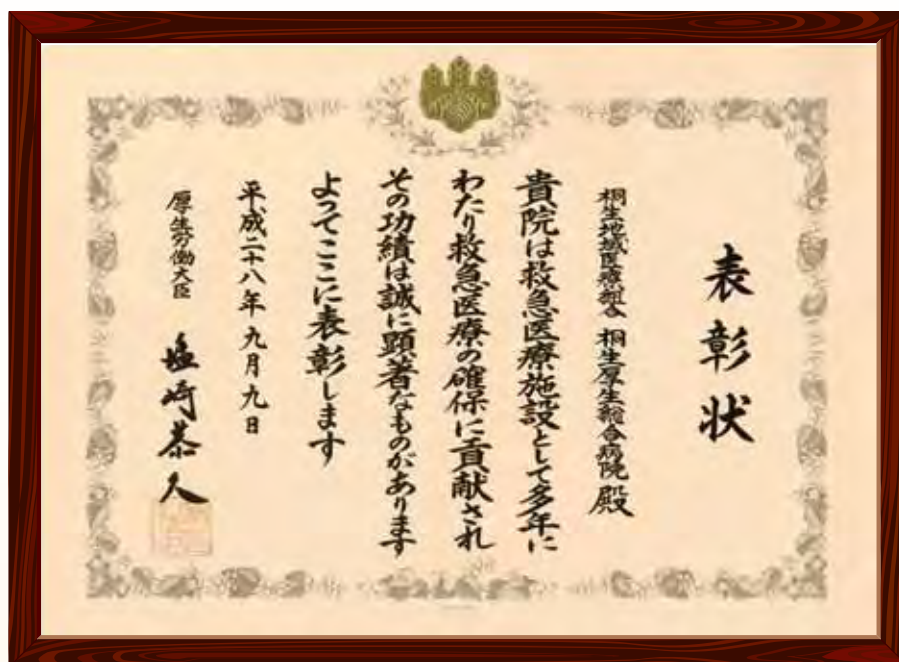 表彰状
桐生地域医療組合 桐生厚生総合病院 殿
貴院は救急医療施設として多年に
わたり救急医療の確保に貢献され
その功績は誠に顕著なものがあります
よってここに表彰します
平成二十八年九月九日
厚生労働大臣 塩崎恭久